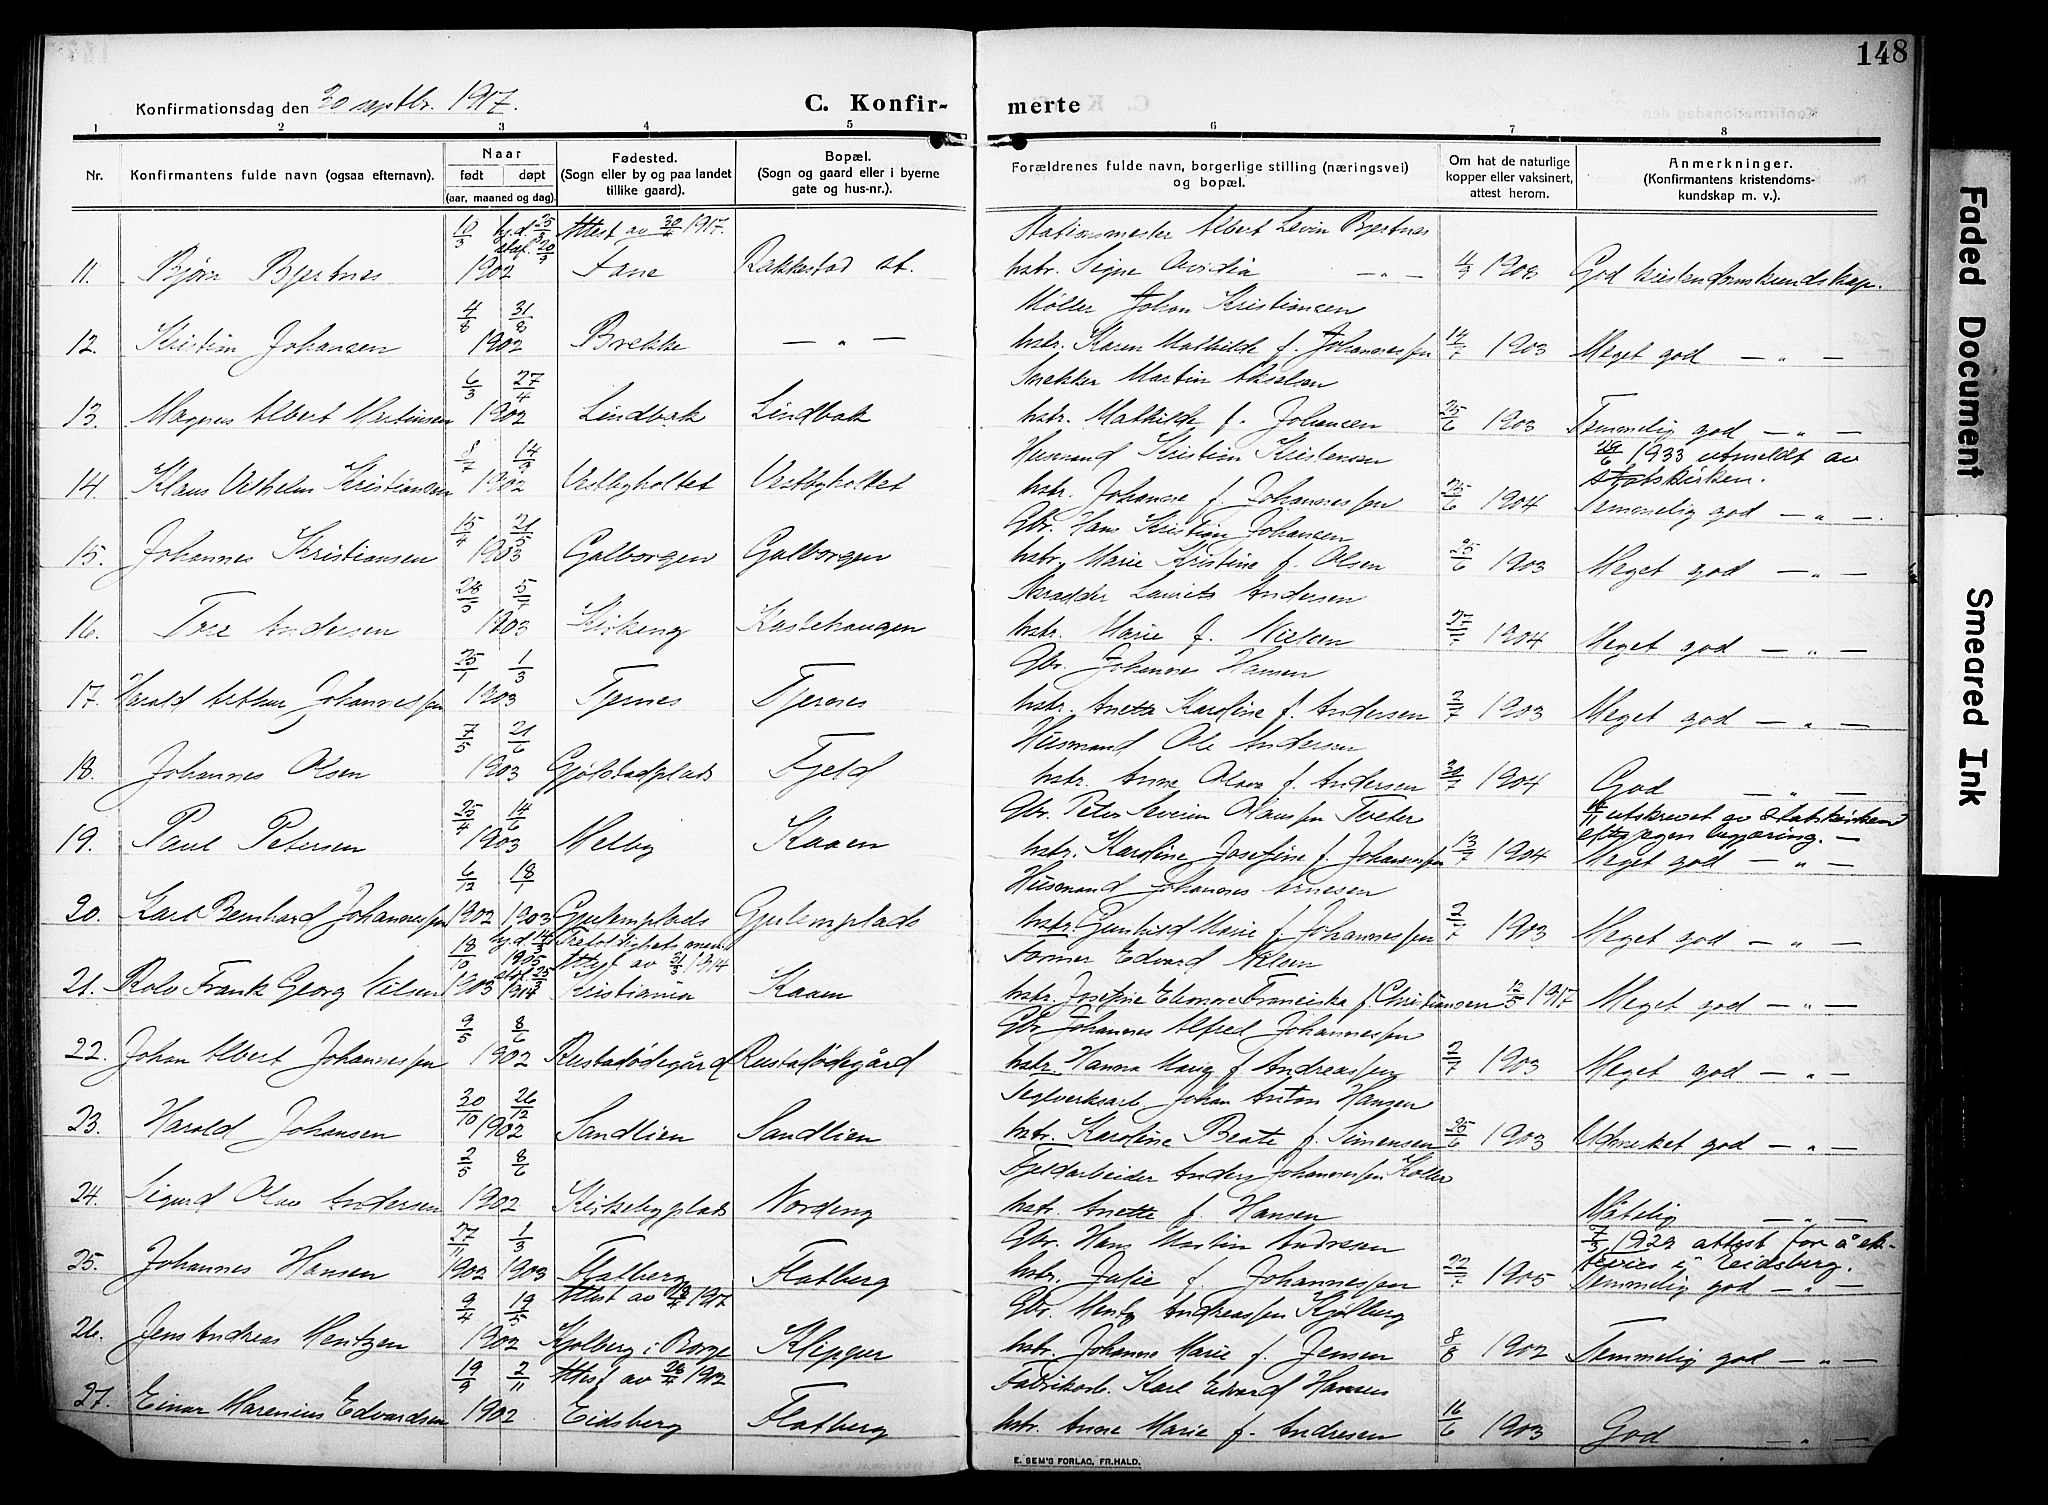 148
Konfirmationsdag den 30 septbr. 1917.
C. Konfir-
merte
1 2 3 4 5 6 7 8
Nr.
Konfirmantens fulde navn (ogsaa efternavn).
Naar
født døpt
(aar, maaned og dag).
Fødested.
(Sogn eller by og paa landet
tillike gaard).
Bopæl.
(Sogn og gaard eller i byerne
gate og hus-nr.).
Forældrenes fulde navn, borgerlige stilling (næringsvei)
og bopæl.
Om hat de naturlige
kopper eller vaksinert,
attest herom.
Anmerkninger.
(Konfirmantens kristendoms-
kundskap m. v.).
10/3 hj.d. 25/3 Attest av 30/4 1917. Stationsmester Albert Levin Bjertnes
11. Bjørn Bjertnes 1902 Fane Rakkestad st. hstr. Signe — „ — 4/9 1908 God kristendomskundskap.
4/8 31/8 Møller Johan Kristiansen
12. Kristian Johansen 1902 Brekke — „ — hstr. Karen Mathilde f. Johannessen 14/7 1903 Meget god — „ —
6/3 27/4 Snekker Martin Akselsen
13. Magnus Albert Martinsen 1902 Lindbak Lindbak hstr. Mathilde f. Johansen 25/6 1903 Temmelig god — „ —
8/7 14/9 Husmand Kristian Kristensen 29/6 1933 utmeldt av
statskirken.
14. Klaus Vilhelm Kristiansen 1902 Vestbyholtet Vestbyholtet hstr. Johanne f. Johannessen 25/6 1904 Temmelig god — „ —
15/4 21/5 Gbr. Hans Kristian Johansen
15. Johannes Kristiansen 1903 Galborgen Galborgen hstr. Marie Kristine f. Olsen 25/6 1903 Meget god — „ —
28/5 5/7 Skrædder Laurits Andersen
16. Tore Andersen 1903 Kirkeng Kastehaugen hstr. Marie f. Nielsen 1904 Meget god — „ —
25/1 1/3 Gbr. Johannes Hansen
17. Harald Arthur Johannessen 1903 Tjernes Tjernes hstr. Anette Karoline f. Andersen 2/7 1903 Meget god — „ —
7/5 21/6 Husmand Ole Andersen
18. Johannes Olsen 1903 Gjølstadplads Fjeld hstr. Anne Olava f. Andersen 30/7 1904 God — „ —
25/4 14/6 Gbr. Peter Severin Hansen Tveter 14/11 utskrevet av statskirken
efter egen begjæring. —
19. Paul Petersen 1903 Melby Kaaen hstr. Karoline Josefine f. Johannessen 13/7 1904 Meget god — „ —
6/12 18/1 Husmand Johannes Arnesen
20. Karl Bernhard Johannessen 1902 1903 Gjulemplads Gjulemplads hstr. Gunhild Marie f. Johannessen 2/7 1903 Meget god — „ —
18/10 hj.d. 14/3 1905 Trefoldighets men. Attest av 31/3 1914 Former Edvard Nilsen
21. Rolv Frank Georg Nilsen 1903 1914 Kristiania Kaaen hstr. Josefine Eleonore Franciska f. Christiansen 12/5 1917 Meget god — „ —
9/5 8/6 Gbr Johannes Alfred Johannessen
22. Johan Albert Johannessen 1902 Rustadødegård Rustadødegård hstr. Hanna Marie f. Andreassen 2/7 1903 Meget god — „ —
30/10 26/12 Teglverksarb. Johan Anton Hansen
23. Harald Johansen 1902 Sandlien Sandlien hstr. Karoline Beate f. Simensen 25/6 1903 Udmerket god — „ —
2/5 8/6 Fjeldarbeider Anders Johannessen Koller
24. Sigurd Olav Andersen 1902 Kirkebyplads Nordeng hstr. Anette f. Hansen Måtelig — „ —
27/11 1/3 Gbr. Hans Martin Andresen 7/3 1929 attest for å ek-
25. Johannes Hansen 1902 1903 Flatberg Flatberg hstr. Julie f. Johannessen 22/7 1905 tevies i Eidsberg.
Temmelig god — „ —
9/4 19/5 Attest av 19/4 1917 Gbr. Mentz Andreassen Kjølberg
26. Jens Andreas Mentzen 1902 Kjølberg i Borge Klepper hstr. Johanne Marie f. Jensen 8/8 1902 Temmelig god — „ —
19/9 2/11 Attest av 28/4 1902 Fabrikarb. Karl Edvard Hansen
27. Einar Marenius Edvardsen 1902 Eidsberg Flatberg hstr. Anne Marie f. Andresen 16/6 1903 God — „ —
E. SEM'S FORLAG, FR.HALD.
Faded Document
Smeared Ink